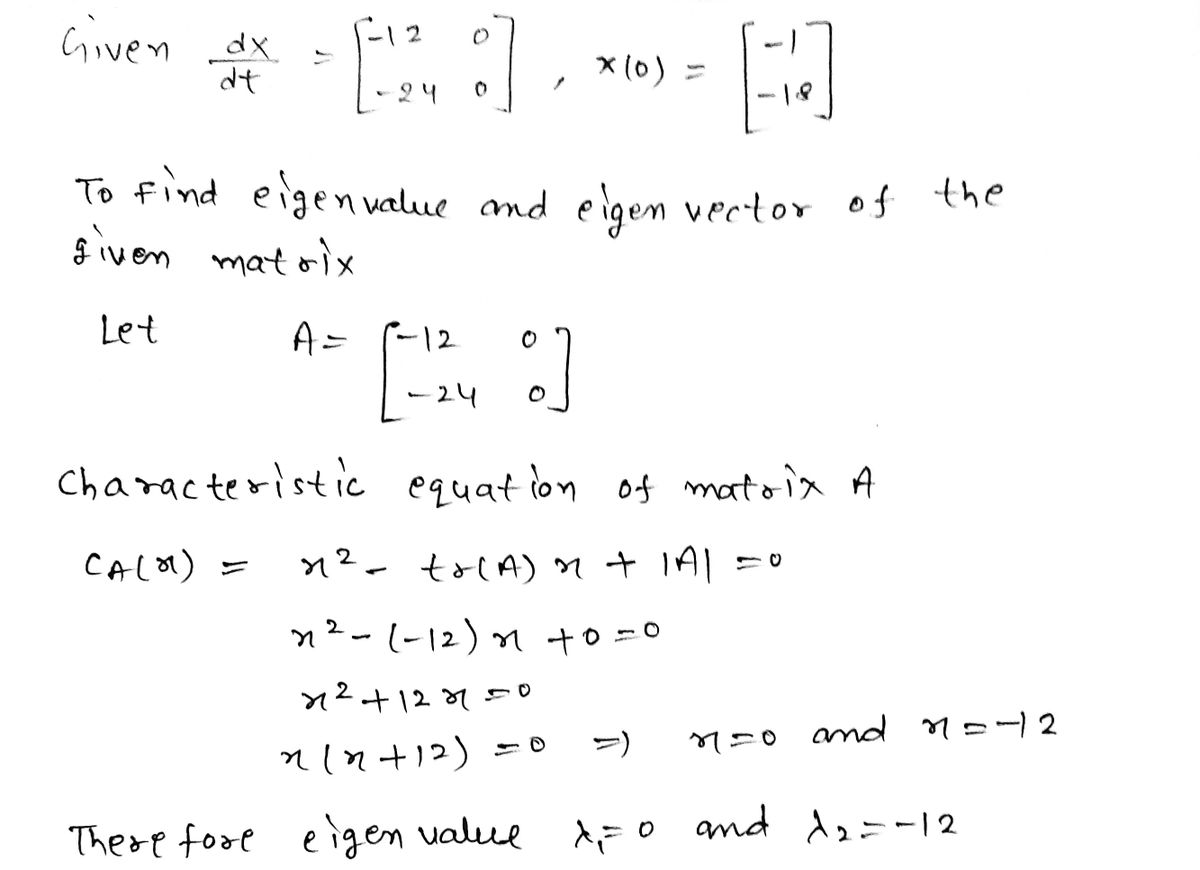 Given dx/dt = [-12 0; -24 0], x(0) = [-1; -18]
To find eigenvalue and eigen vector of the
given matrix
Let A = [-12 0; -24 0]
Characteristic equation of matrix A
C_A(x) = x² - tr(A) x + |A| = 0
x² - (-12) x + 0 = 0
x² + 12 x = 0
x (x + 12) = 0 => x = 0 and x = -12
Therefore eigen value λ₁ = 0 and λ₂ = -12